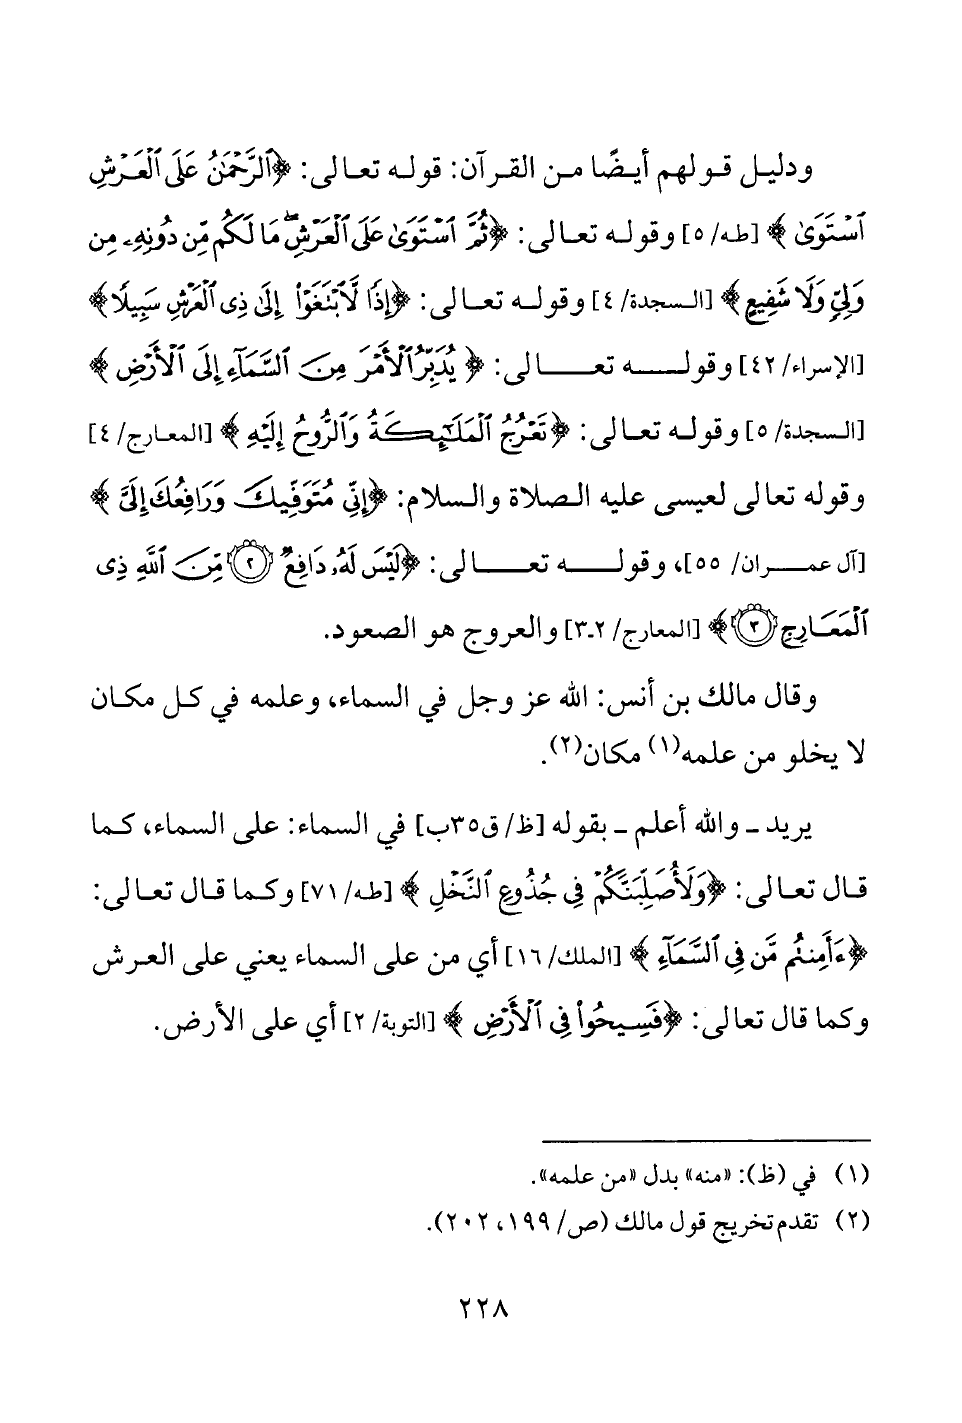 ودليل قولهم أيضًا من القرآن: قوله تعالى: ﴿ٱلرَّحْمَٰنُ عَلَى ٱلْعَرْشِ
ٱسْتَوَىٰ﴾ [طه/ ٥] وقوله تعالى: ﴿ثُمَّ ٱسْتَوَىٰ عَلَى ٱلْعَرْشِۖ مَا لَكُم مِّن دُونِهِۦ مِن
وَلِيٍّ وَلَا شَفِيعٍ﴾ [السجدة/ ٤] وقوله تعالى: ﴿إِذًا لَّٱبْتَغَوْا۟ إِلَىٰ ذِى ٱلْعَرْشِ سَبِيلًا﴾
[الإسراء/ ٤٢] وقوله تعالى: ﴿يُدَبِّرُ ٱلْأَمْرَ مِنَ ٱلسَّمَآءِ إِلَى ٱلْأَرْضِ﴾
[السجدة/ ٥] وقوله تعالى: ﴿تَعْرُجُ ٱلْمَلَٰٓئِكَةُ وَٱلرُّوحُ إِلَيْهِ﴾ [المعارج/ ٤]
وقوله تعالى لعيسى عليه الصلاة والسلام: ﴿إِنِّى مُتَوَفِّيكَ وَرَافِعُكَ إِلَىَّ﴾
[آل عمران/ ٥٥]، وقوله تعالى: ﴿لَيْسَ لَهُۥ دَافِعٌ ٢ مِّنَ ٱللَّهِ ذِى
ٱلْمَعَارِجِ ٣﴾ [المعارج/ ٢-٣] والعروج هو الصعود.
وقال مالك بن أنس: الله عز وجل في السماء، وعلمه في كل مكان
لا يخلو من علمه(١) مكان(٢).
يريد ـ والله أعلم ـ بقوله [ظ/ ق٣٥ب] في السماء: على السماء، كما
قال تعالى: ﴿وَلَأُصَلِّبَنَّكُمْ فِى جُذُوعِ ٱلنَّخْلِ﴾ [طه/ ٧١] وكما قال تعالى:
﴿ءَأَمِنتُم مَّن فِى ٱلسَّمَآءِ﴾ [الملك/ ١٦] أي من على السماء يعني على العرش
وكما قال تعالى: ﴿فَسِيحُوا۟ فِى ٱلْأَرْضِ﴾ [التوبة/ ٢] أي على الأرض.
(١) في (ظ): «منه» بدل «من علمه».
(٢) تقدم تخريج قول مالك (ص/ ١٩٩، ٢٠٢).
٢٢٨